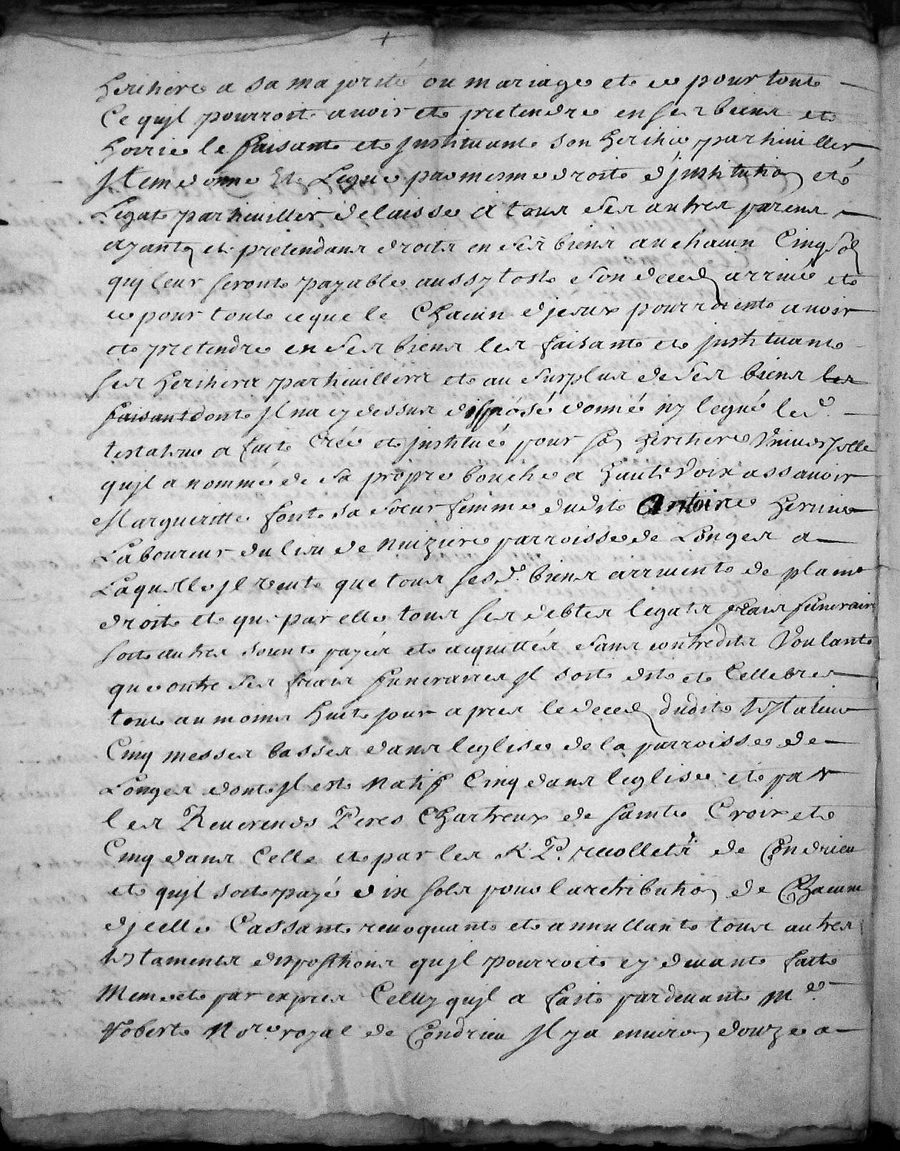 +
heritiere a sa majorité ou mariage et ce pour tout
Ce quil pourroit avoir et pretendre en ses biens et
hoirie le faisant et jnstituant son heritier particullier
jtem donne et Legue par mesme droit djnstitution et
Legat particullier delaisse A tous ses autres parens
ayants et pretendans droits en ses biens a un chacun Cinq sols
quy leur seront payable aussytost son deced arrivé et
ce pour tout ce que le Chacun djceux pourroient avoir
et pretendre en ses biens les faisant et jnstituant
ses heritiers particulliers et au surplus de ses biens les
faisant dont jl na cy dessus disposé donné ny legué led
testateur a fait Créé et jnstitué pour son heritiere Universelle
qujl a nommé de sa propre bouche a haute voix assavoir
Margueritte font sa sœur femme dudit Antoine
Laboureur du lieu de Nuziere parroisse de Longes a
Laquelle jl veut que tous sesd biens arrivent de plaine
droit et que par elle tous ses debtes legats frais funeraires
soit autres soient payés et acquittés sans contredits Voulant
que outre ses frais funeraires jl soit dit et Cellebrer
tout au moins huit jour apres le deced dudit testateur
Cinq messes basses dans leglise de la parroisse de
Longes dont jl est Natif Cinq dans leglise et par
les Reverends Peres Chartreux de Sainte Croix et
Cinq dans Celle et par les R. P. recollets de Condrieu
et quil soit payé dix sols pour lattribution de Chacune
djcelle Cassant revoquant et annullant tous autres
testaments dispositions qujl pourroit cy devant fait
Meme et par expres Celluy qujl a fait pardevant Me
Nore royal de Condrieu jl y a environ douze a